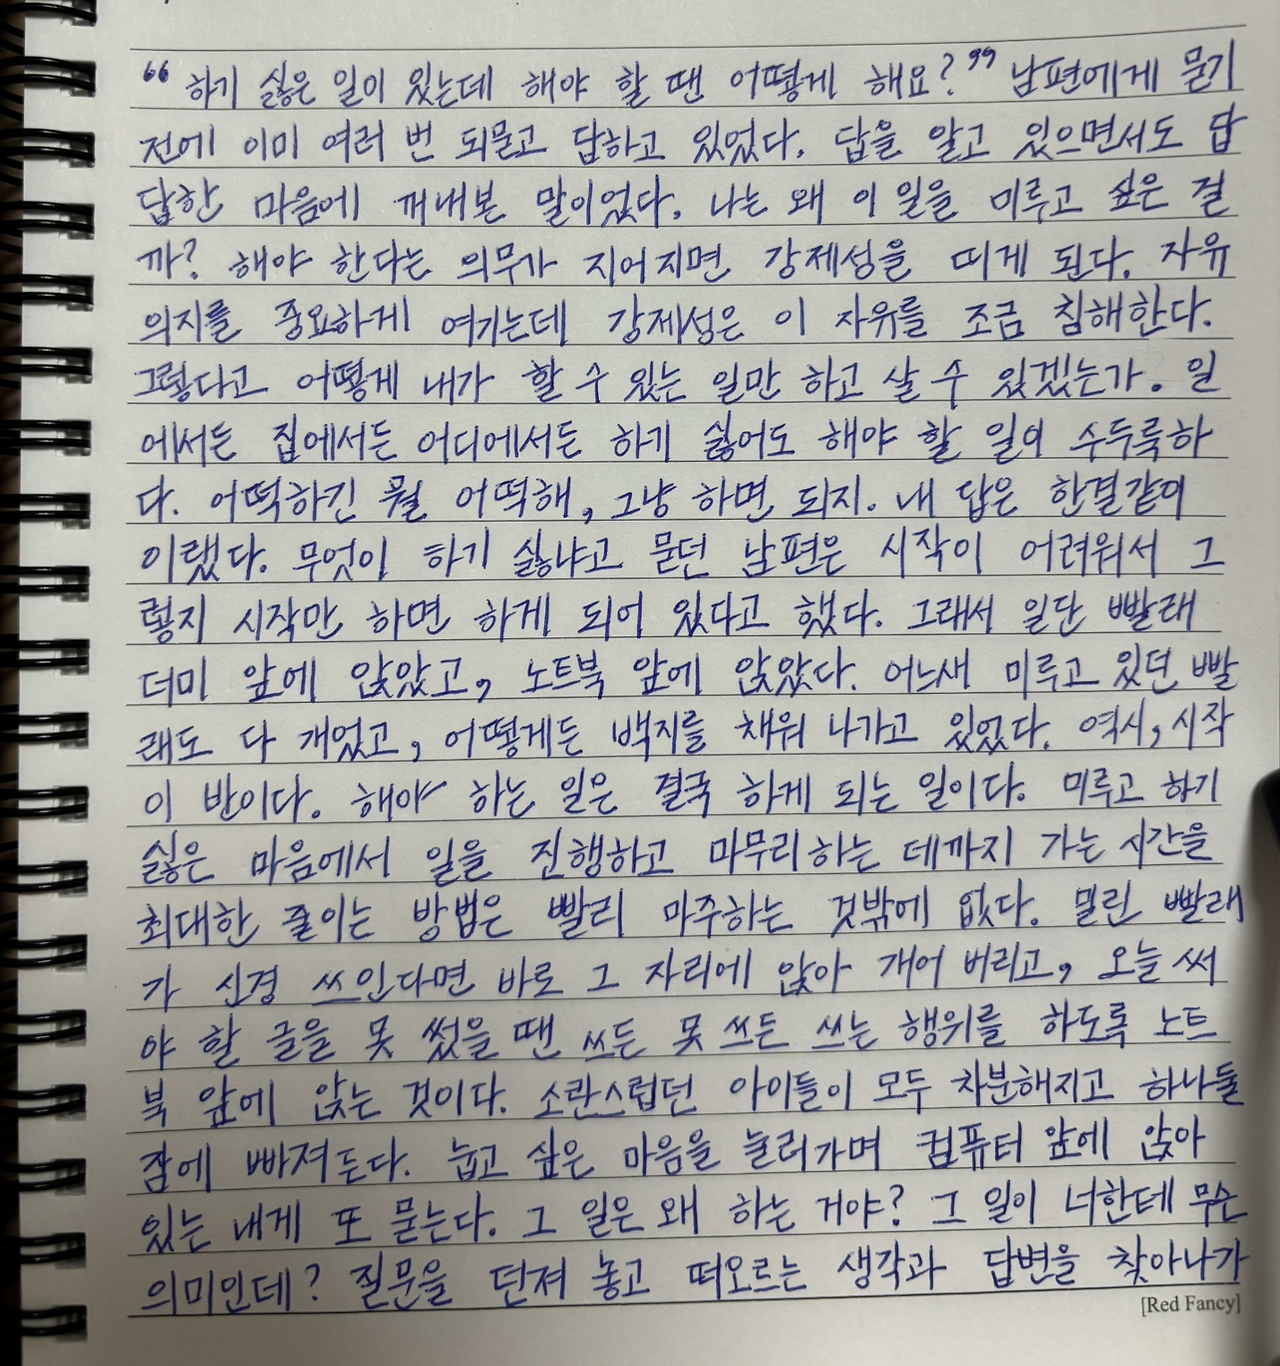 “하기 싫은 일이 있는데 해야 할 땐 어떻게 해요?” 남편에게 묻기
전에 이미 여러 번 되묻고 답하고 있었다. 답을 알고 있으면서도 답
답한 마음에 꺼내본 말이었다. 나는 왜 이 일을 미루고 싶은 걸
까? 해야 한다는 의무가 지어지면 강제성을 띠게 된다. 자유
의지를 중요하게 여기는데 강제성은 이 자유를 조금 침해한다.
그렇다고 어떻게 내가 할 수 있는 일만 하고 살 수 있겠는가. 일
에서든 집에서든 어디에서든 하기 싫어도 해야 할 일이 수두룩하
다. 어떡하긴 뭘 어떡해, 그냥 하면 되지. 내 답은 한결같이
이랬다. 무엇이 하기 싫냐고 묻던 남편은 시작이 어려워서 그
렇지 시작만 하면 하게 되어 있다고 했다. 그래서 일단 빨래
더미 앞에 앉았고, 노트북 앞에 앉았다. 어느새 미루고 있던 빨
래도 다 개었고, 어떻게든 백지를 채워 나가고 있었다. 역시, 시작
이 반이다. 해야 하는 일은 결국 하게 되는 일이다. 미루고 하기
싫은 마음에서 일을 진행하고 마무리하는 데까지 가는 시간을
최대한 줄이는 방법은 빨리 마주하는 것밖에 없다. 밀린 빨래
가 신경 쓰인다면 바로 그 자리에 앉아 개어 버리고, 오늘 써
야 할 글을 못 썼을 땐 쓰든 못 쓰든 쓰는 행위를 하도록 노트
북 앞에 앉는 것이다. 소란스럽던 아이들이 모두 차분해지고 하나둘
잠에 빠져든다. 눕고 싶은 마음을 눌러가며 컴퓨터 앞에 앉아
있는 내게 또 묻는다. 그 일은 왜 하는 거야? 그 일이 너한테 무슨
의미인데? 질문을 던져 놓고 떠오르는 생각과 답변을 찾아나가
[Red Fancy]